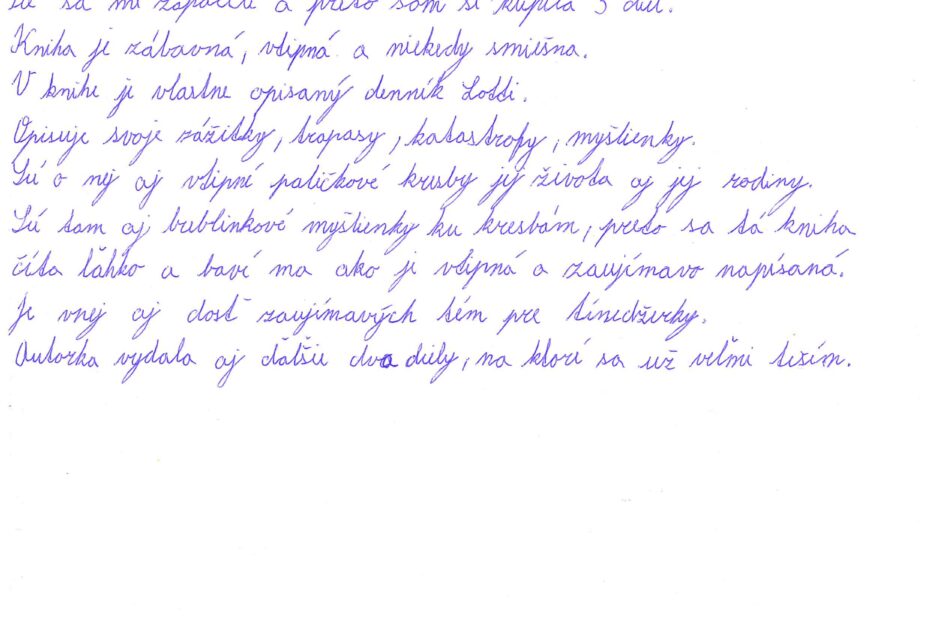 sa mi a preto som si kúpila 3 diel.
Kniha je zábavná, vtipná a niekedy smiešna.
V knihe je vlastne opísaný denník Lotti.
Opisuje svoje zážitky, trapasy, katastrofy, myšlienky.
Sú o nej aj vtipné paličkové kresby jej života aj jej rodiny.
Sú tam aj bublinkové myšlienky ku kresbám, preto sa tá kniha
číta ľahko a baví ma ako je vtipná a zaujímavo napísaná.
Je vnej aj dosť zaujímavých tém pre tínedžerky.
Autorka vydala aj ďalšie dva diely, na ktoré sa už veľmi teším.